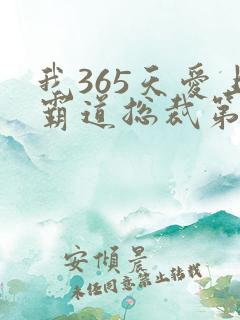 我365天爱上
霸道总裁第
安倾晨
未经同意禁止转载